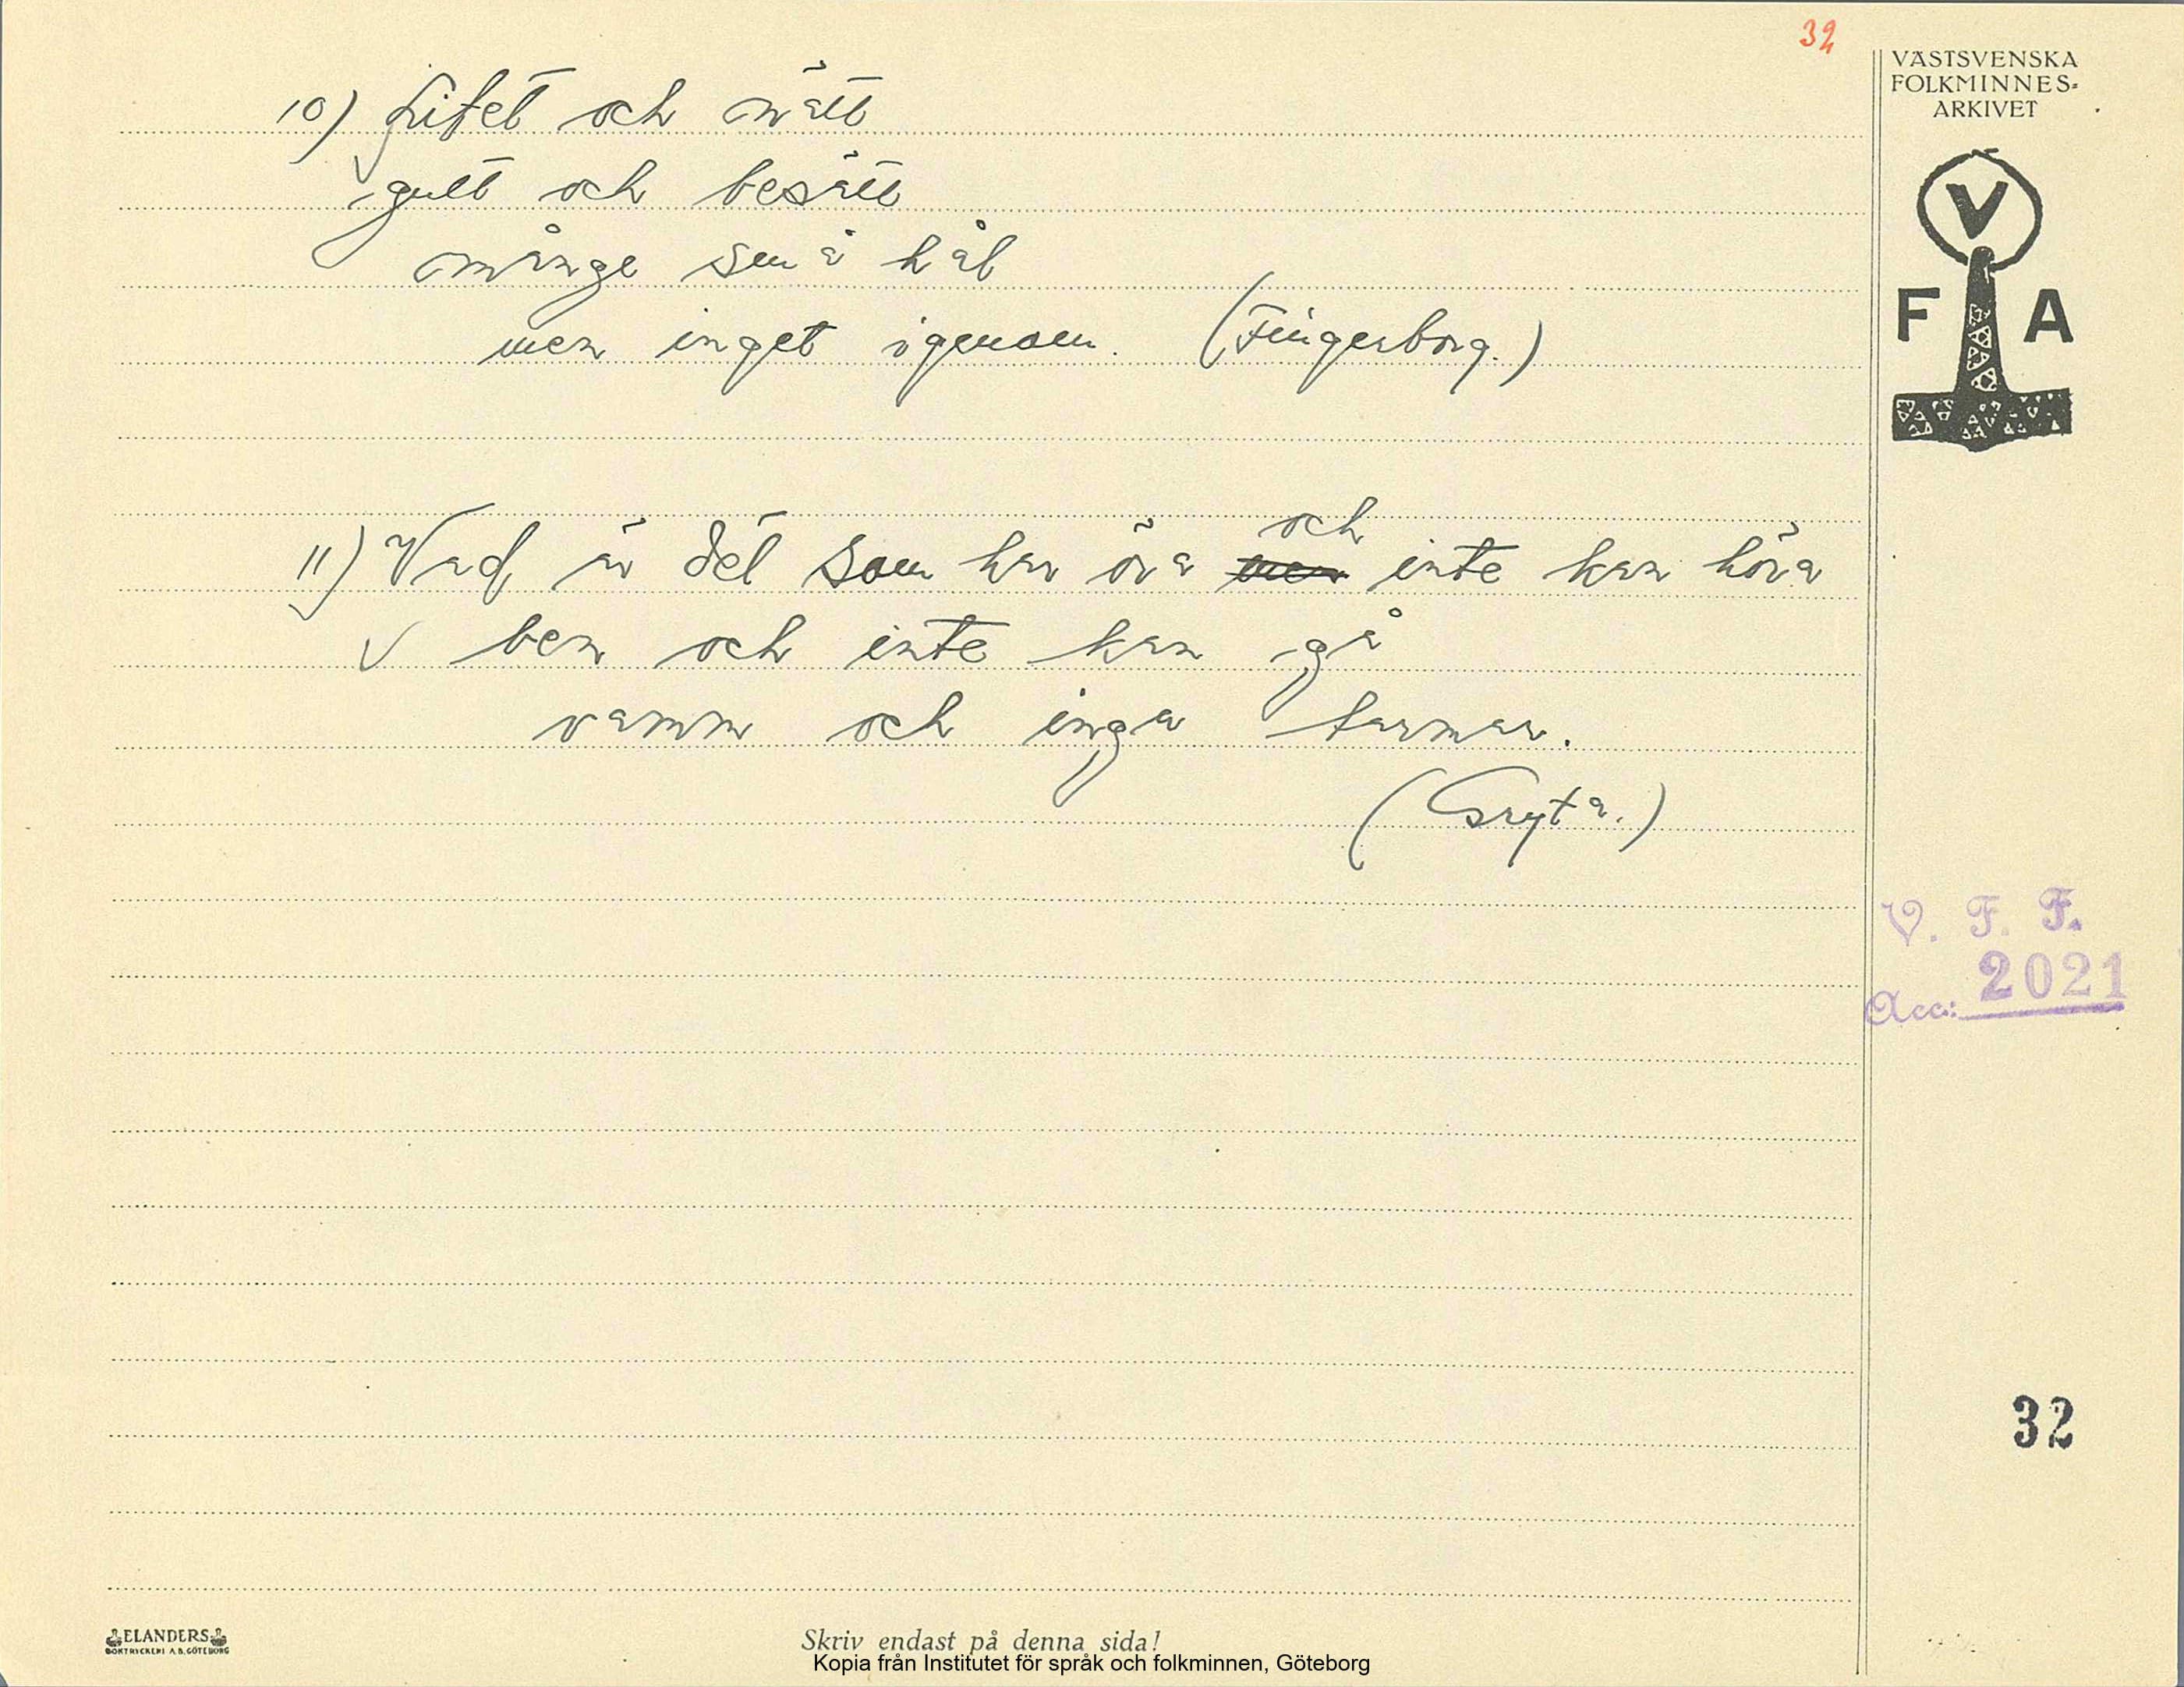 32
VÄSTSVENSKA
FOLKMINNES-
ARKIVET
V
F A
10) Litet och nätt
gult och besätt
många små hål
men inget igenom. (Fingerborg.)
och
11) Vad är det som har öra men inte kan höra
ben och inte kan gå
vamm och inga tarmar.
(Gryta.)
V. F. F.
Acc: 2021
32
ELANDERS
BOKTRYCKERI A.B. GÖTEBORG
Skriv endast på denna sida!
Kopia från Institutet för språk och folkminnen, Göteborg